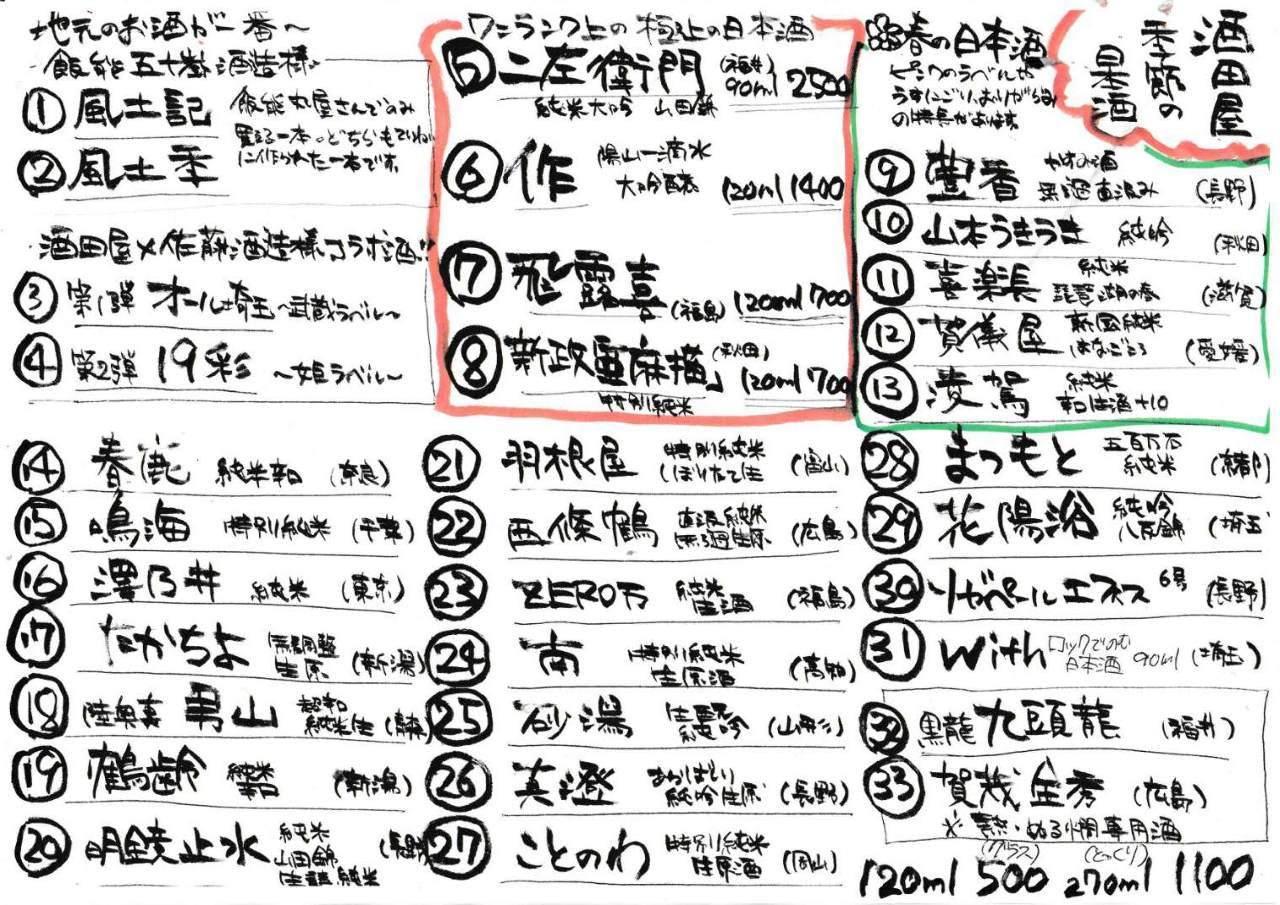 酒田屋
季節の
日本酒
地元のお酒が一番〜
飯能五十嵐酒造様
① 風土記 飯能丸屋さんでのみ
買える一本。どちらもていねい
に作られた一本です。
② 風土季
酒田屋×佐藤酒造様コラボ酒!!
③ 第1弾 オール埼玉 〜武蔵ラベル〜
④ 第2弾 19彩 〜姫ラベル〜
ワンランク上の極上の日本酒
⑤ 二左衛門 (福井) 90ml 2500
純米大吟 山田錦
⑥ 作 陽山一滴水
大吟醸 120ml 1400
⑦ 飛露喜 (福島) 120ml 700
⑧ 新政亜麻猫」 (秋田) 120ml 700
特別純米
春の日本酒
ピンクのラベルや
うすにごり、おりがらみ
の特長があります。
⑨ 豊香 かすみ酒
無濾過直汲み (長野)
⑩ 山本うきうき 純吟 (秋田)
⑪ 喜楽長 純米
琵琶湖の春 (滋賀)
⑫ 賀儀屋 無濾過純米
はなごころ (愛媛)
⑬ 凌駕 純米
辛口生酒+10
⑭ 春鹿 純米辛口 (奈良)
⑮ 鳴海 特別純米 (千葉)
⑯ 澤乃井 純米 (東京)
⑰ たかちよ 無調整
生原 (新潟)
⑱ 陸奥 男山 超辛
純米生 (青森)
⑲ 鶴齢 純米
辛口 (新潟)
⑳ 明鏡止水 純米
山田錦 (長野)
純米
㉑ 羽根屋 特別純米
しぼりたて生 (富山)
㉒ 西條鶴 直汲純米
無濾過生原 (広島)
㉓ ZERO万 純米
生酒 (福島)
㉔ 南 特別純米
生原酒 (高知)
㉕ 砂潟 (山形)
㉖ 真澄 あらばしり
純吟生原 (長野)
㉗ ことのわ 特別純米
生原酒 (岡山)
㉘ まつもと 五百万石
純米 (京都)
㉙ 花陽浴 純吟
八反錦 (埼玉)
㉚ リガペールエネス 6号 (長野)
㉛ With ロックでのむ
日本酒 90ml (埼玉)
㉜ 黒龍 九頭龍 (福井)
㉝ 賀茂金秀 (広島)
※ 熱・ぬる燗専用酒
(グラス) (とっくり)
120ml 500 270ml 1100